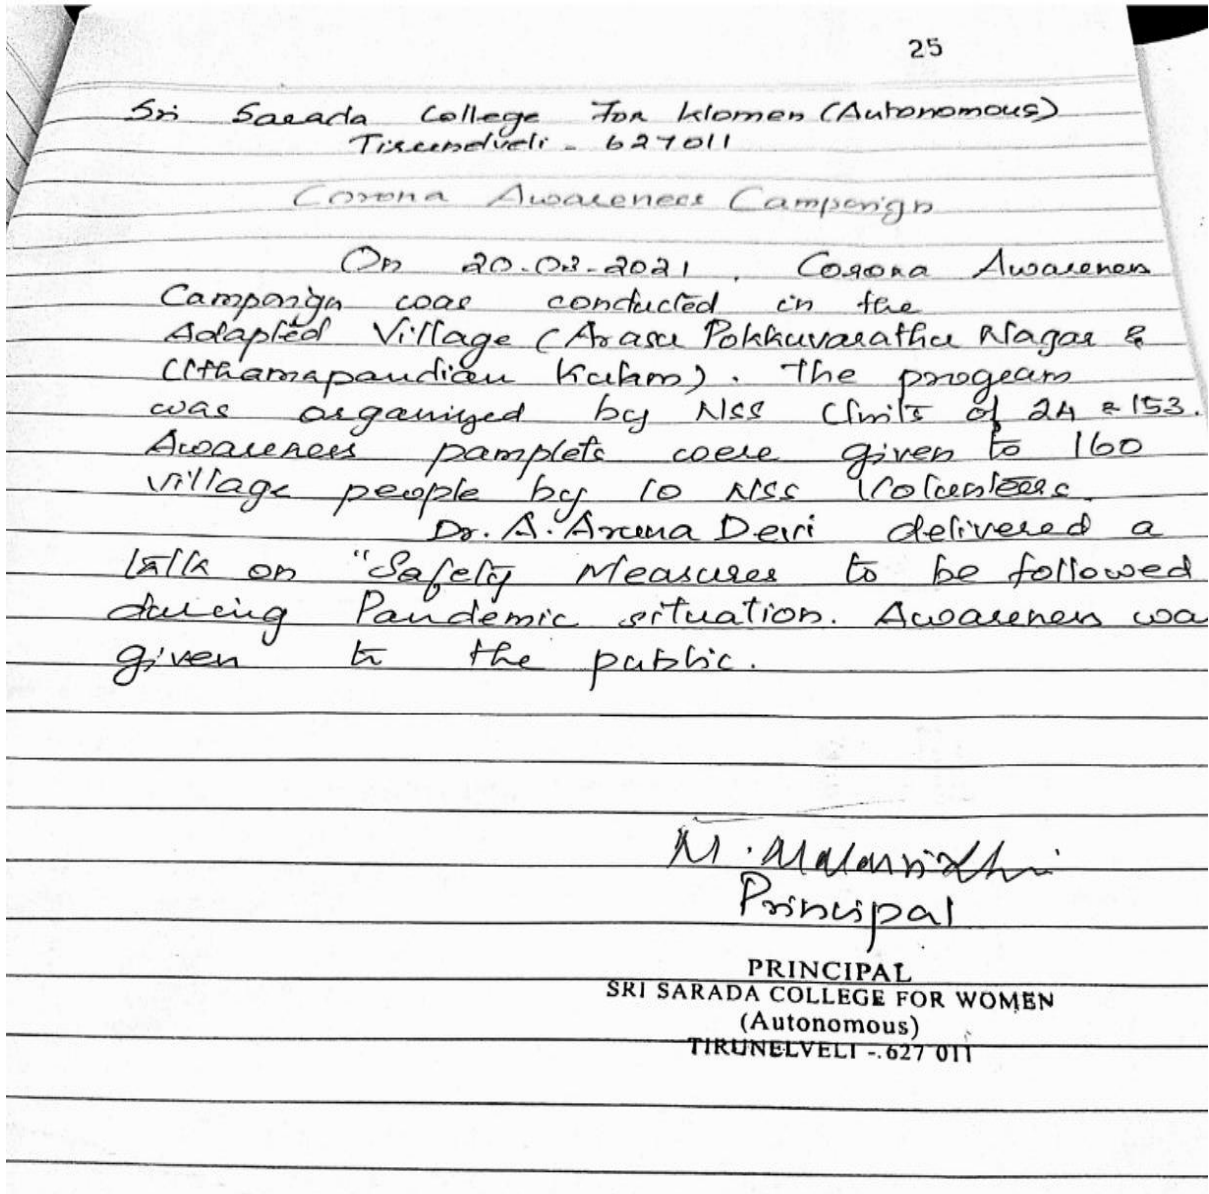 25
Sri Sarada College For Women (Autonomous)
Tirunelveli - 627011
Corona Awareness Campaign
On 20.03.2021, Corona Awareness
Campaign was conducted in the
Adapted Village (Arasu Pokkuvarathu Nagar &
Uthamapandian Kulam). The program
was organized by NSS Units of 24 & 153.
Awareness pamplets were given to 160
village people by 10 NSS Volunteers.
Dr. A. Aruna Devi delivered a
talk on "Safety Measures to be followed
during Pandemic situation. Awareness wa
given to the public.
M. Malarvizhi
Principal
PRINCIPAL
SRI SARADA COLLEGE FOR WOMEN
(Autonomous)
TIRUNELVELI - 627 011